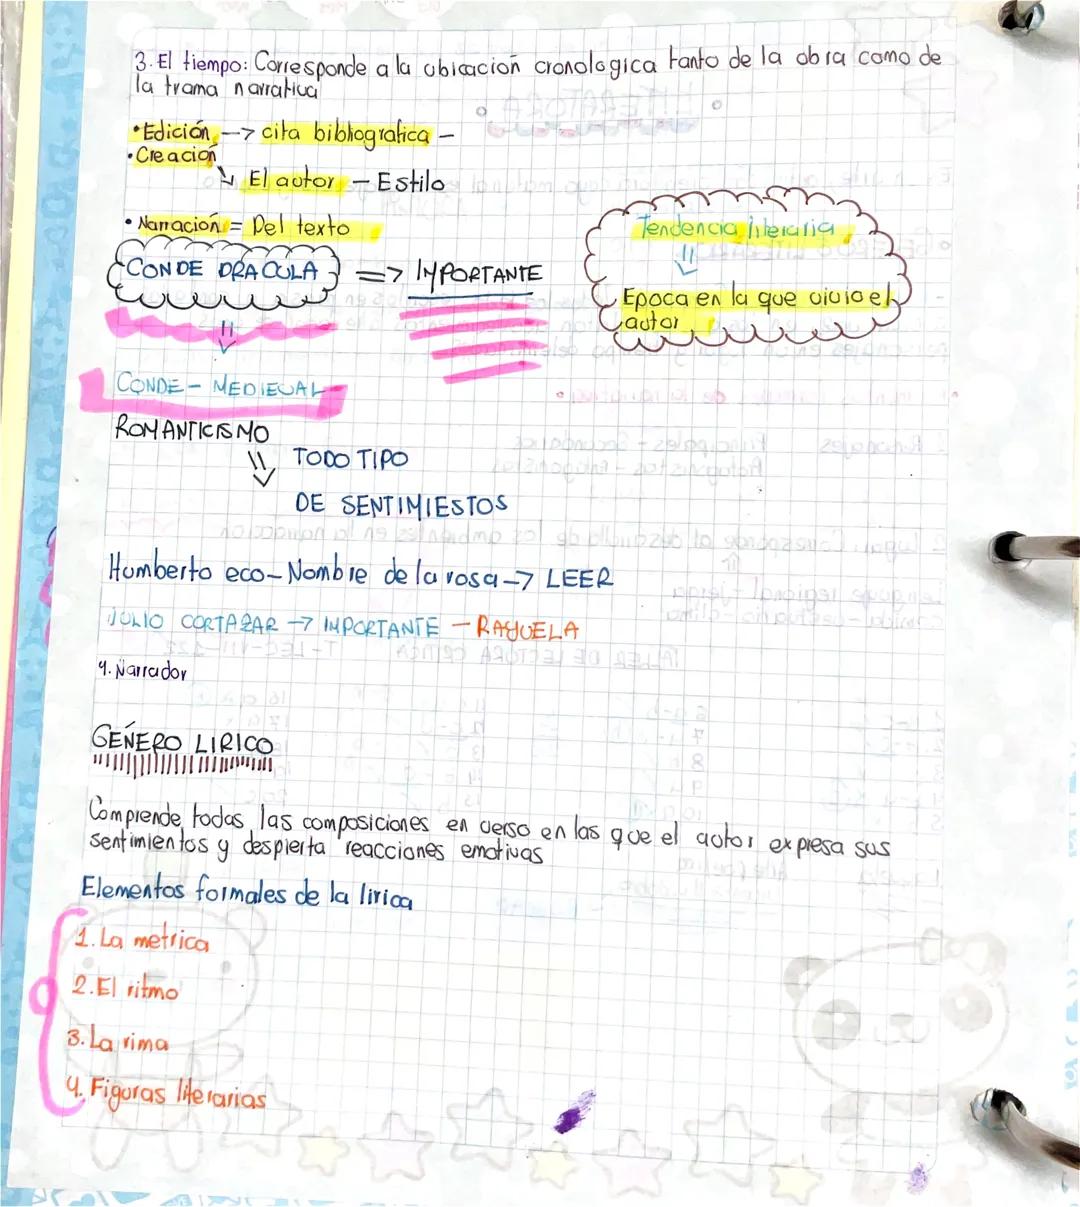 3. El tiempo: Corresponde a la ubicación cronologica tanto de la obra como de
la trama narrativa
• Edición --> cita bibliografica -
• Creación
↘ El autor - Estilo
• Narración = Del texto
CONDE DRACULA => IMPORTANTE
Tendencia literaria
Epoca en la que vivio el
autor
CONDE - MEDIEVAL
ROMANTICISMO
TODO TIPO
DE SENTIMIESTOS
Humberto eco - Nombre de la rosa -> LEER
JULIO CORTAZAR -> IMPORTANTE - RAYUELA
4. Narrador
GÉNERO LIRICO
Comprende todas las composiciones en verso en las que el autor expresa sus
sentimientos y despierta reacciones emotivas
Elementos formales de la lirica
1. La metrica
2. El ritmo
3. La rima
4. Figuras literarias